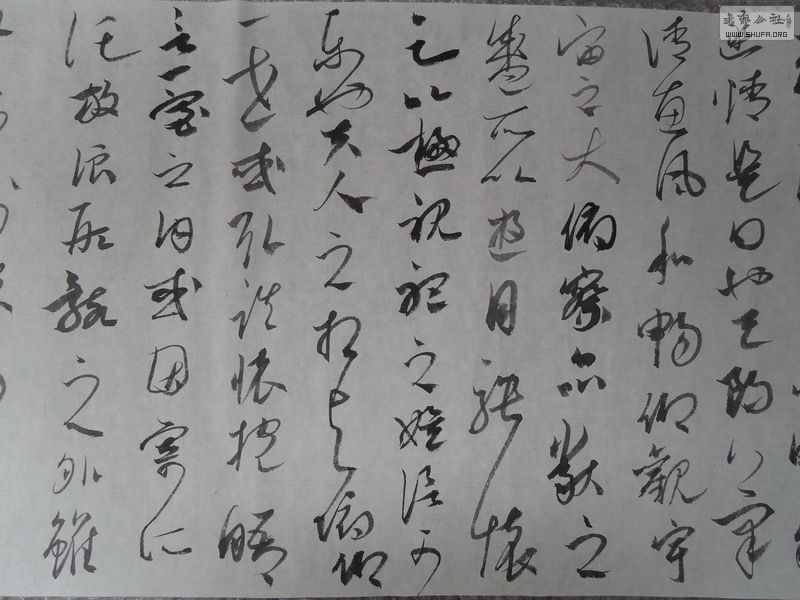 情是日也天朗氣
清惠風和暢仰觀宇
宙之大俯察品類之
盛所以遊目騁懷
足以極視聽之娛信可
樂也夫人之相與俯仰
一世或取諸懷抱晤
言一室之內或因寄所
託放浪形骸之外雖
書藝公社
WWW.SHUFA.ORG